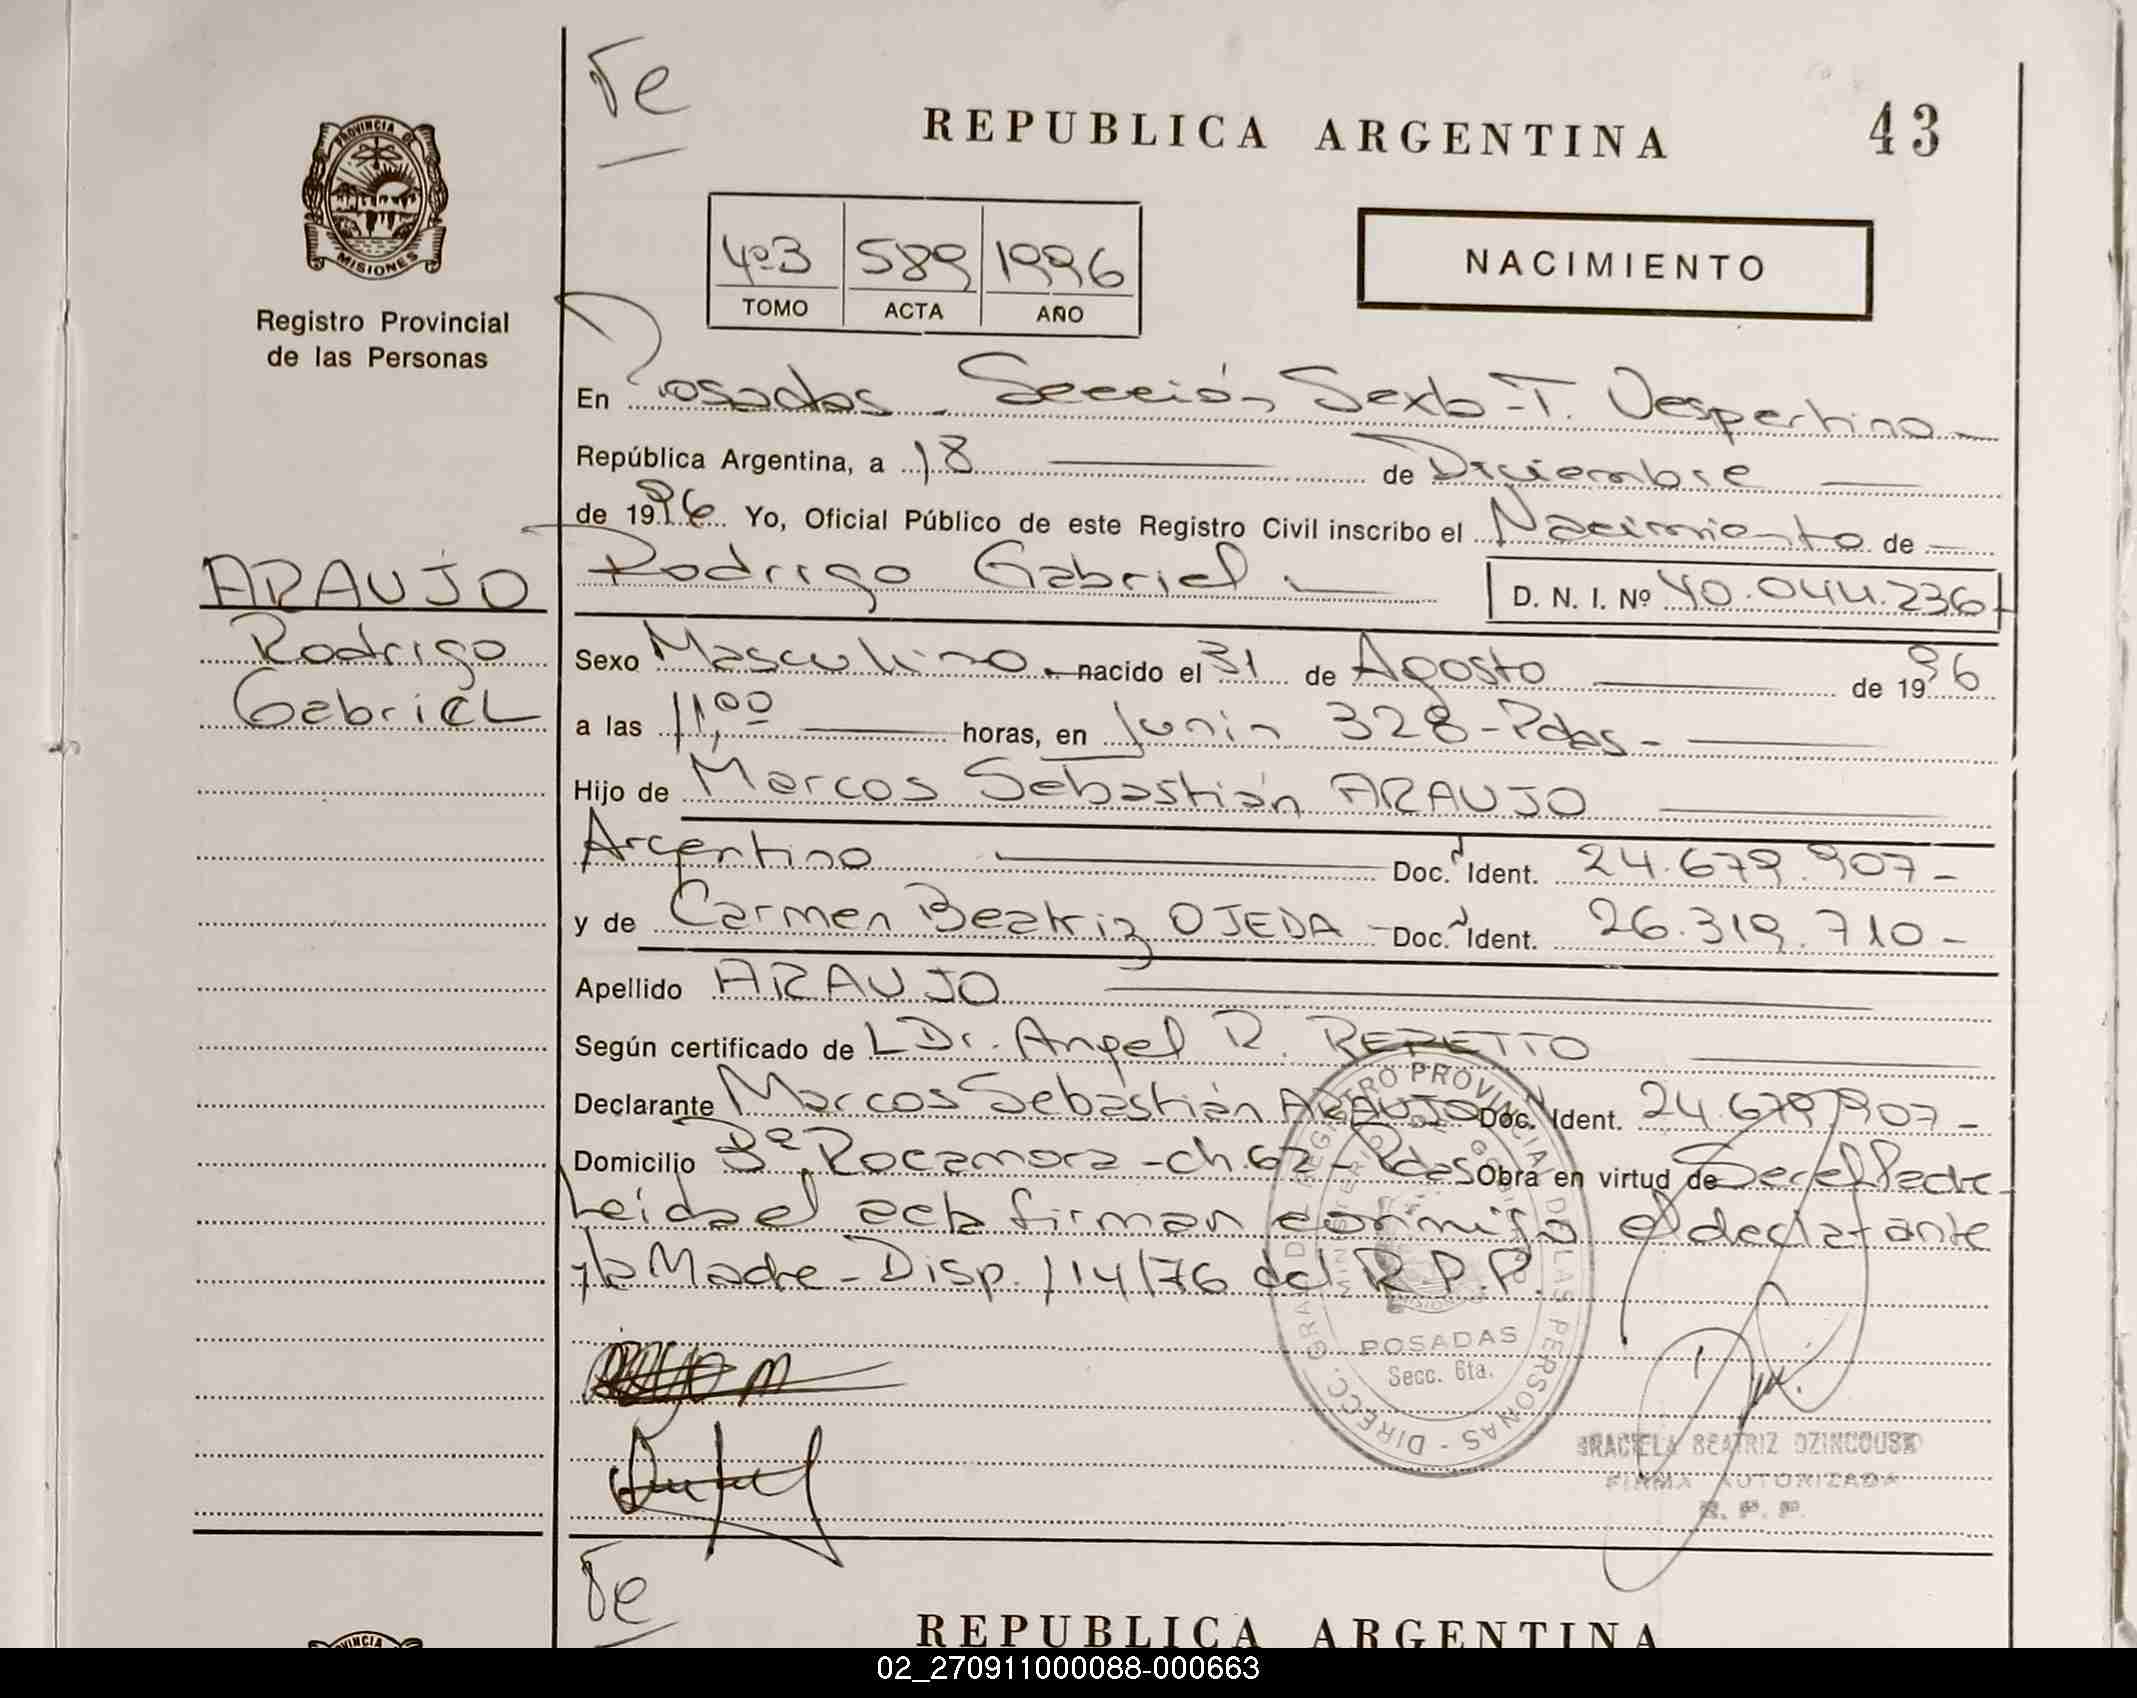 Te
REPUBLICA ARGENTINA
43
PROVINCIA DE
MISIONES
Registro Provincial
de las Personas
4º3 589 1996
TOMO ACTA AÑO
NACIMIENTO
En Posadas - Sección Sexta - T. Vespertino -
República Argentina, a 18 de Diciembre
de 1996 Yo, Oficial Público de este Registro Civil inscribo el Nacimiento de
Rodrigo Gabriel D. N. I. Nº 40.044.236
ARAUJO
Rodrigo
GabrieL
Sexo Masculino nacido el 31 de Agosto de 1996
a las 11,00 horas, en Junin 328 - Pdas -
Hijo de Marcos Sebastián ARAUJO
Argentino Doc. Ident. 24.679.907 -
y de Carmen Beatriz OJEDA - Doc. Ident. 26.319.710 -
Apellido ARAUJO
Según certificado de L Dr. Angel R. REPETTO
Declarante Marcos Sebastián ARAUJO Doc. Ident. 24.679.907 -
Domicilio Bº Rocamora - ch. 62 - Pdas Obra en virtud de Ser el Padre -
Leida el acta firman conmigo el declarante
y la Madre - Disp. 114/76 del R.P.P.
DIRECC. GRAL. DE REGISTRO PROVINCIAL DE LAS PERSONAS
MINISTERIO DE GOBIERNO
MISIONES
POSADAS
Secc. 6ta.
GRACIELA BEATRIZ
FIRMA AUTORIZADA
R. P. P.
Te
PROVINCIA
REPUBLICA ARGENTINA
02_270911000088-000663